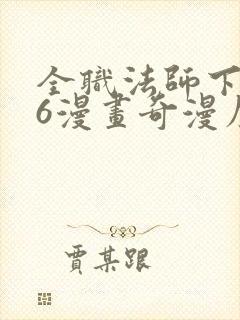 全職法師下
6漫畫奇漫屋
賈某跟